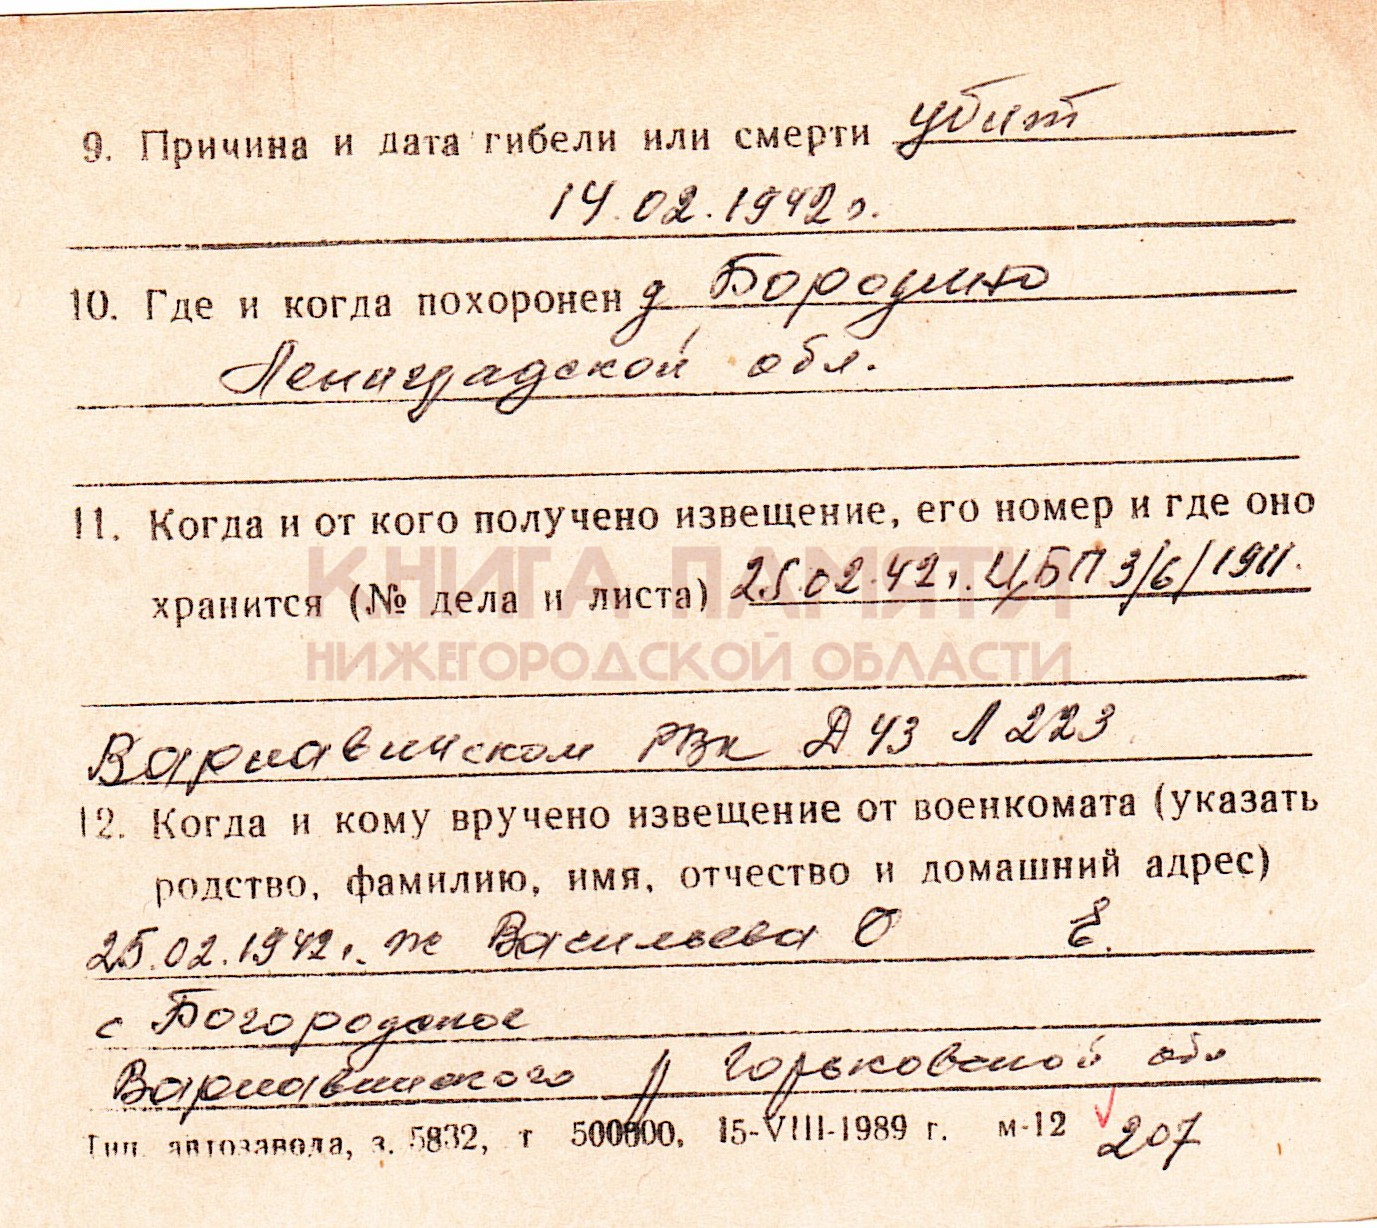 9. Причина и дата гибели или смерти убит
14.02.1942г.
10. Где и когда похоронен д Бородино
Ленинградской обл.
11. Когда и от кого получено извещение, его номер и где оно
КНИГА ПАМЯТИ
хранится (№ дела и листа) 25.02.42г. ЦБП 3/6/1911.
НИЖЕГОРОДСКОЙ ОБЛАСТИ
Варнавинском РВК Д 43 Л 223
12. Когда и кому вручено извещение от военкомата (указать
родство, фамилию, имя, отчество и домашний адрес)
25.02.1942г. ж Васильева О Е.
с Богородское
Варнавинского р Горьковской обл
Тип. автозавода, з. 5832, т 500000, 15-VIII-1989 г. м-12 207